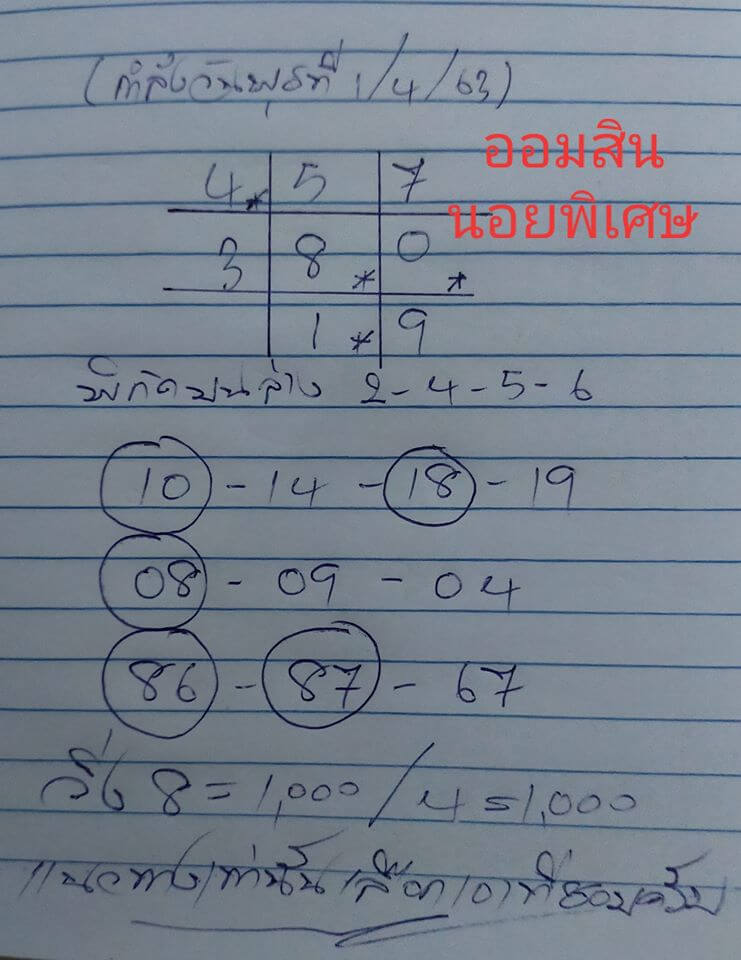 (กำลังวันพุธที่ 1/4/63)
ออมสิน
นอยพิเศษ
4* 5 7
3 8* 0*
1* 9
พิกัดบนล่าง 2-4-5-6
10-14-18-19
08-09-04
86-87-67
วิ่ง 8=1,000/4=1,000
แนวทางเท่านั้นเลือกเอาที่ชอบครับ